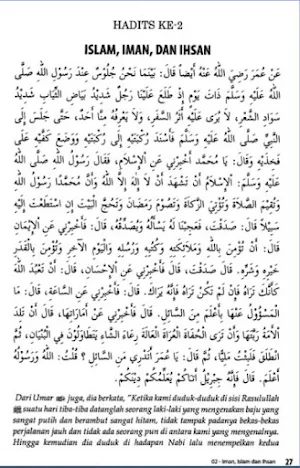 HADITS KE-2
ISLAM, IMAN, DAN IHSAN
عَنْ عُمَرَ رَضِيَ اللهُ عَنْهُ أَيْضاً قَالَ: بَيْنَمَا نَحْنُ جُلُوْسٌ عِنْدَ رَسُوْلِ اللهِ صَلَّى
اللهُ عَلَيْهِ وَسَلَّمَ ذَاتَ يَوْمٍ إِذْ طَلَعَ عَلَيْنَا رَجُلٌ شَدِيْدُ بَيَاضِ الثِّيَابِ شَدِيْدُ
سَوَادِ الشَّعْرِ، لاَ يُرَى عَلَيْهِ أَثَرُ السَّفَرِ، وَلاَ يَعْرِفُهُ مِنَّا أَحَدٌ، حَتَّى جَلَسَ إِلَى
النَّبِي صَلَّى اللهُ عَلَيْهِ وَسَلَّمَ فَأَسْنَدَ رُكْبَتَيْهِ إِلَى رُكْبَتَيْهِ وَوَضَعَ كَفَّيْهِ عَلَى
فَخِذَيْهِ وَقَالَ: يَا مُحَمَّد أَخْبِرْنِي عَنِ الْإِسْلاَمِ، فَقَالَ رَسُوْلُ اللهِ صَلَّى اللهُ
عَلَيْهِ وَسَلَّمَ: الْإِسْلاَمُ أَنْ تَشْهَدَ أَنْ لاَ إِلَهَ إِلاَّ اللهُ وَأَنَّ مُحَمَّدًا رَسُوْلُ اللهِ
وَتُقِيْمَ الصَّلاَةَ وَتُؤْتِيَ الزَّكَاةَ وَتَصُوْمَ رَمَضَانَ وَتَحُجَّ الْبَيْتَ إِنِ اسْتَطَعْتَ إِلَيْهِ
سَبِيْلاً قَالَ: صَدَقْتَ، فَعَجِبْنَا لَهُ يَسْأَلُهُ وَيُصَدِّقُهُ، قَالَ: فَأَخْبِرْنِي عَنِ الْإِيْمَانِ
قَالَ: أَنْ تُؤْمِنَ بِاللهِ وَمَلاَئِكَتِهِ وَكُتُبِهِ وَرُسُلِهِ وَالْيَوْمِ الآخِرِ وَتُؤْمِنَ بِالْقَدَرِ
خَيْرِهِ وَشَرِّهِ. قَالَ صَدَقْتَ، قَالَ فَأَخْبِرْنِي عَنِ الْإِحْسَانِ، قَالَ: أَنْ تَعْبُدَ اللهَ
كَأَنَّكَ تَرَاهُ فَإِنْ لَمْ تَكُنْ تَرَاهُ فَإِنَّهُ يَرَاكَ. قَالَ: فَأَخْبِرْنِي عَنِ السَّاعَةِ، قَالَ: مَا
الْمَسْؤُوْلُ عَنْهَا بِأَعْلَمَ مِنَ السَّائِلِ. قَالَ فَأَخْبِرْنِي عَنْ أَمَارَاتِهَا، قَالَ أَنْ تَلِدَ
الْأَمَةُ رَبَّتَهَا وَأَنْ تَرَى الْحُفَاةَ الْعُرَاةَ الْعَالَةَ رِعَاءَ الشَّاءِ يَتَطَاوَلُوْنَ فِي الْبُنْيَانِ، ثُمَّ
انْطَلَقَ فَلَبِثْتُ مَلِيًّا، ثُمَّ قَالَ: يَا عُمَرَ أَتَدْرِي مَنِ السَّائِلِ ؟ قُلْتُ: اللهُ وَرَسُوْلُهُ
أَعْلَمُ. قَالَ فَإِنَّهُ جِبْرِيْلُ أَتَاكُمْ يُعَلِّمُكُمْ دِيْنَكُمْ.
Dari Umar ﷺ juga, dia berkata, "Ketika kami duduk-duduk di sisi Rasulullah
ﷺ suatu hari tiba-tiba datanglah seorang laki-laki yang mengenakan baju yang
sangat putih dan berambut sangat hitam, tidak tampak padanya bekas-bekas
perjalanan jauh dan tidak ada seorang pun di antara kami yang mengenalnya.
Hingga kemudian dia duduk di hadapan Nabi lalu menempelkan kedua
02 - Iman, Islam dan Ihsan 27